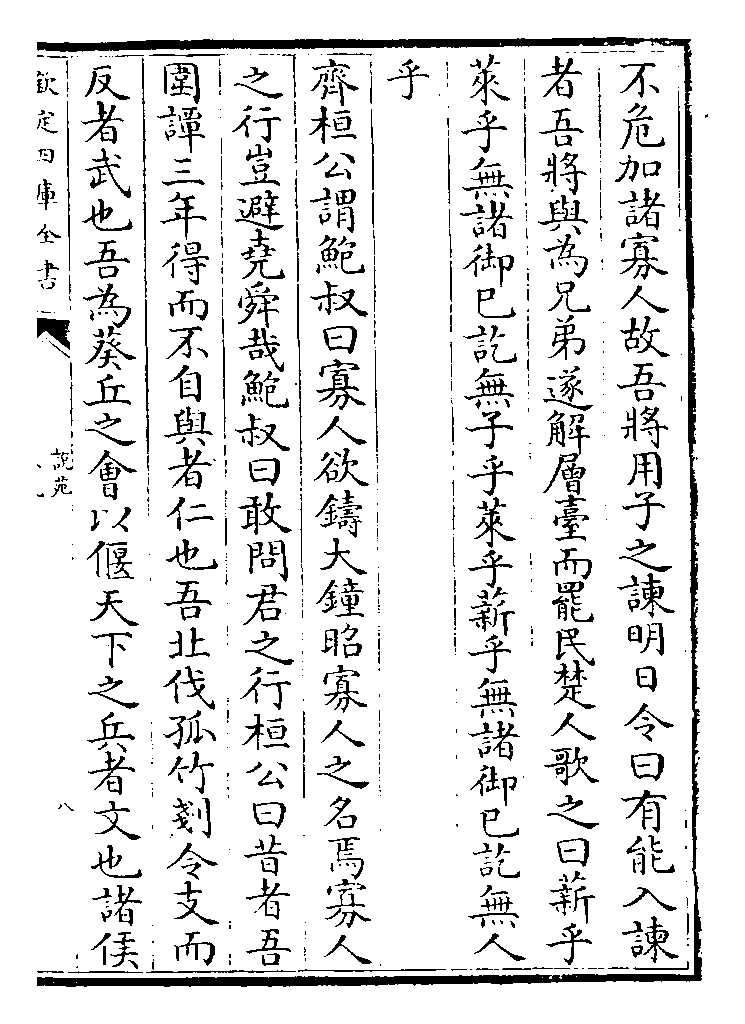 不危加諸寡人故吾將用子之諫明日令曰有能入諫
者吾將與為兄弟遂解層臺而罷民楚人歌之曰薪乎
萊乎無諸御已訖無子乎萊乎薪乎無諸御已訖無人
乎
齊桓公謂鮑叔曰寡人欲鑄大鐘昭寡人之名焉寡人
之行豈避堯舜哉鮑叔曰敢問君之行桓公曰昔者吾
圍譚三年得而不自與者仁也吾北伐孤竹剗令支而
反者武也吾為葵丘之會以偃天下之兵者文也諸侯
欽定四庫全書
說苑
八